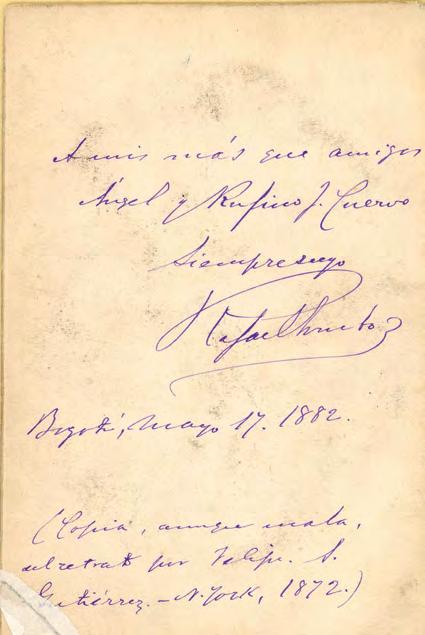 A mis más que amigos
Ángel y Rufino J. Cuervo
siempre suyo
Rafael Pombo
Bogotá, Mayo 17. 1882.
(Copia, aunque mala,
del retrato por Felipe. S.
Gutiérrez. – N. York, 1872.)